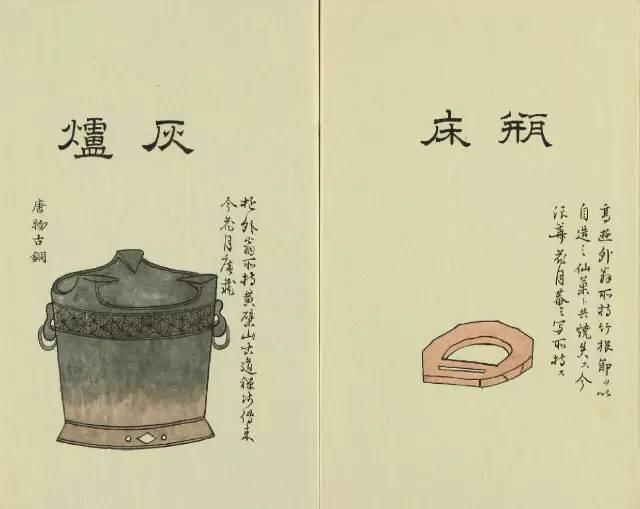 瓶床
高遊外翁所持竹根節ヲ以
自造之仙窠ト共焼失ス今
浪華花月菴之写所持ス
灰爐
遊外翁所持黄檗山古道禅師傳来
今花月庵蔵
唐物古銅